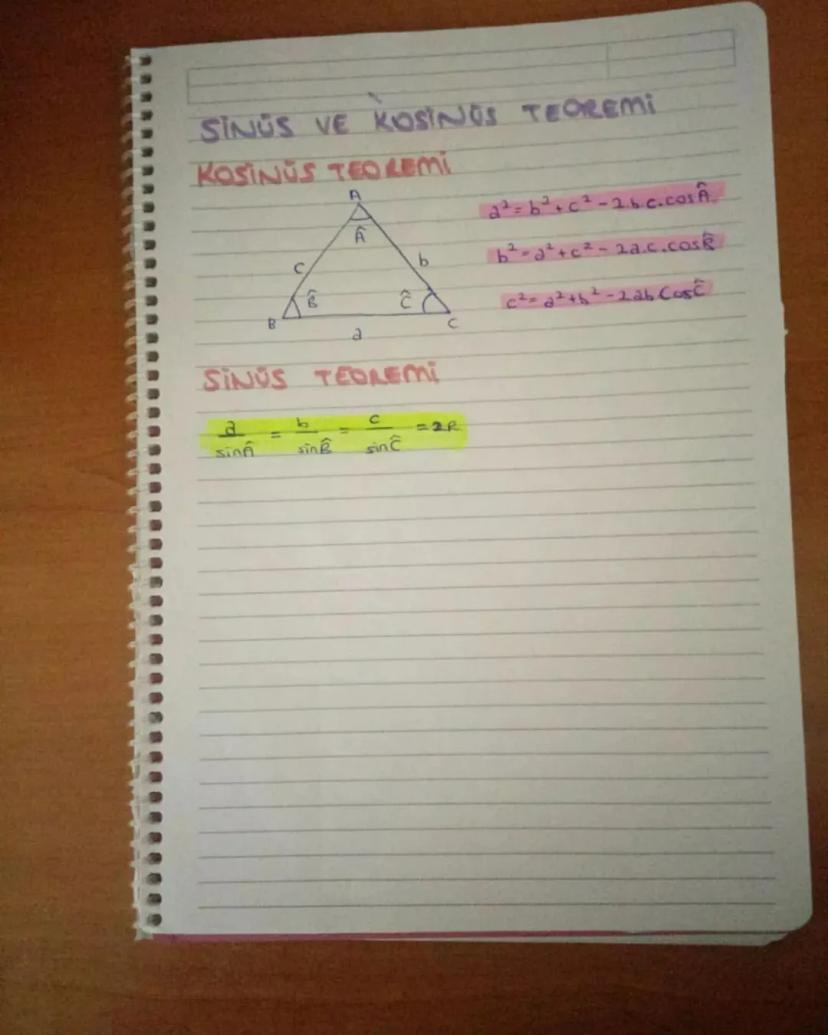 SİNÜS VE KOSİNÜS TEOREMİ
KOSİNÜS TEOREMİ
A
Â
c
b
B̂
Ĉ
B
C
a
a² = b² + c² - 2b.c.cosÂ
b² = a² + c² - 2a.c.cosB̂
c² = a² + b² - 2ab.CosĈ
SİNÜS TEOREMİ
a/sinÂ = b/sinB̂ = c/sinĈ = 2R